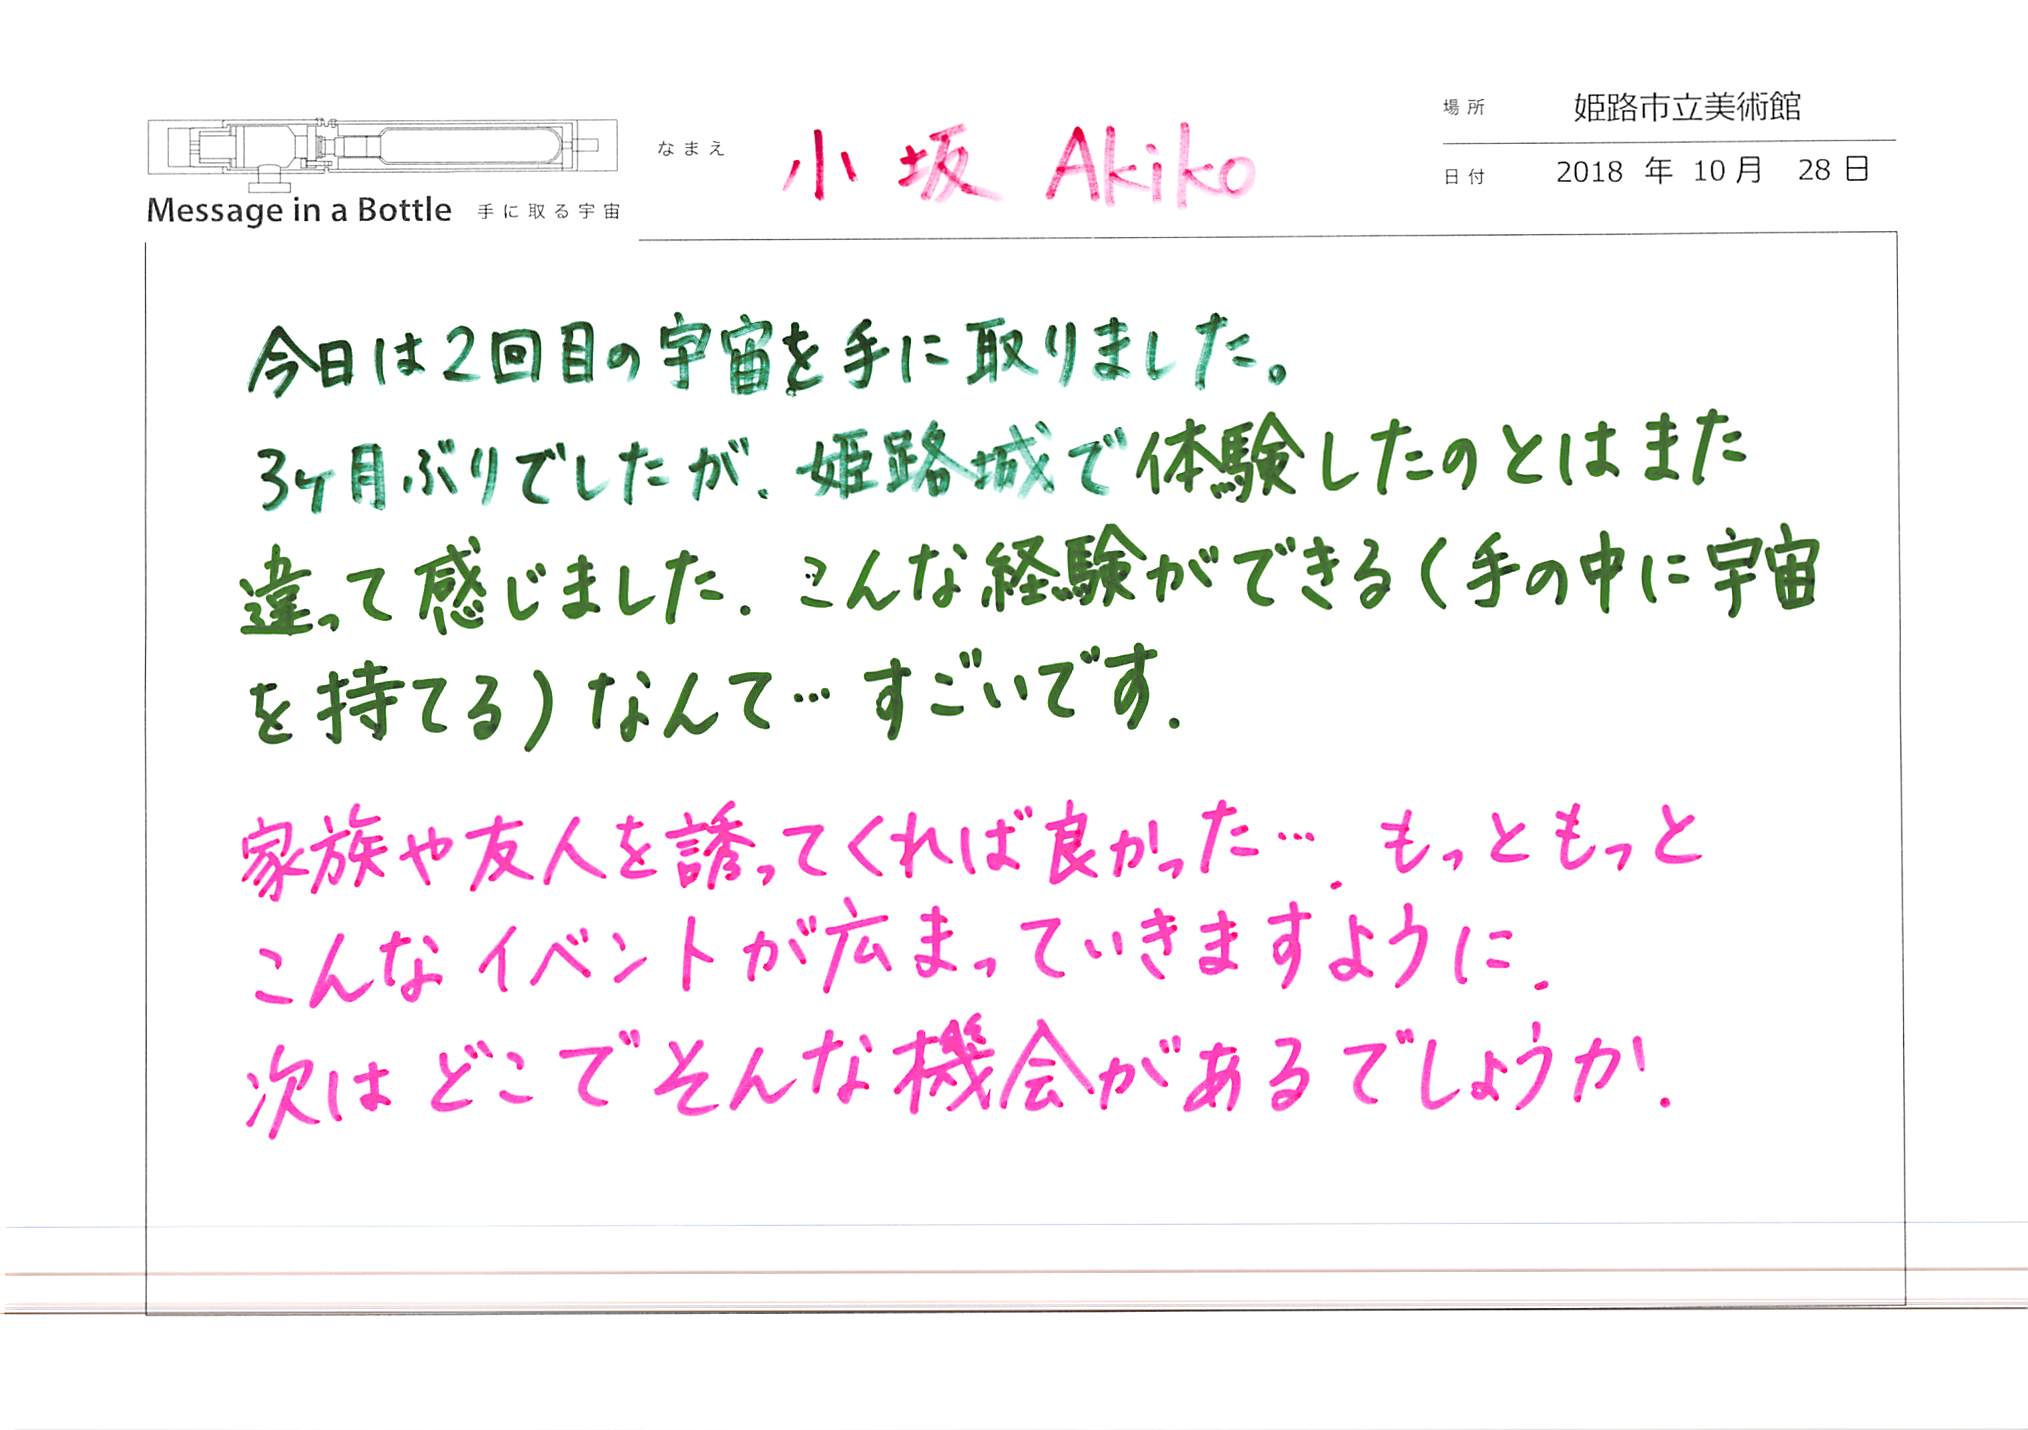 場所 姫路市立美術館
なまえ 小坂 Akiko
日付 2018 年 10 月 28 日
Message in a Bottle 手に取る宇宙
今日は2回目の宇宙を手に取りました。
3ヶ月ぶりでしたが、姫路城で体験したのとはまた
違って感じました. こんな経験ができる(手の中に宇宙
を持てる)なんて… すごいです.
家族や友人を誘ってくれば良かった…. もっともっと
こんなイベントが広まっていきますように.
次はどこでそんな機会があるでしょうか.